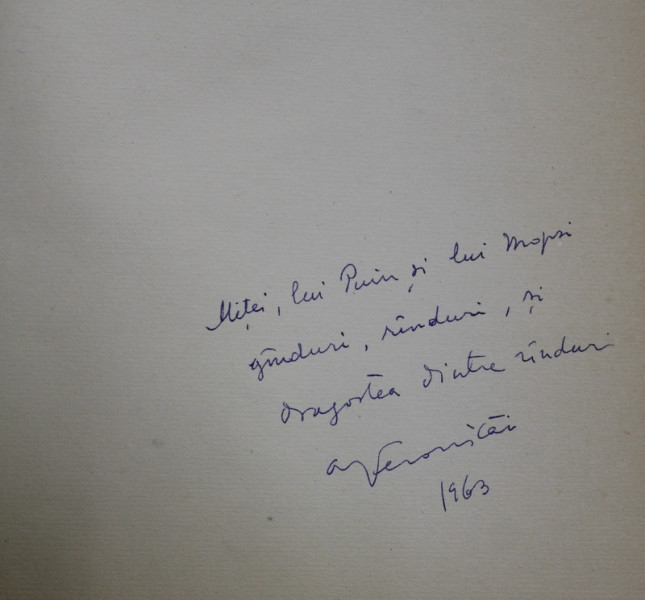 Miței, lui Puiu și lui Mopsi
gînduri, rînduri, și
dragostea dintre rînduri
a Veronicăi
1963